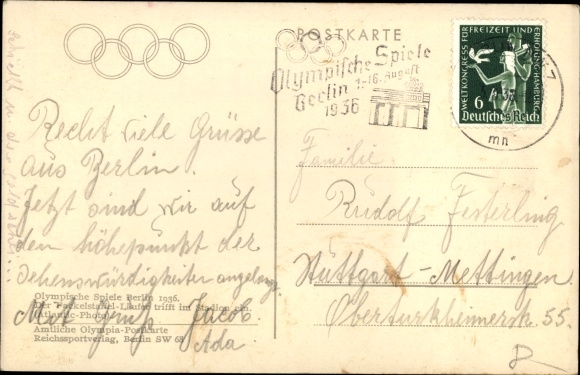 POSTKARTE
Olympische Spiele
1.-16. August
Berlin
1936
WELTKONGRESS FÜR FREIZEIT UND ERHOLUNG HAMBURG
6
Deutsches Reich
mn
Recht viele Grüsse
aus Berlin.
Jetzt sind wir auf
den höhepunkt der
Sehenswürdigkeiten angelangt
Mit Gruß Jacob.
Ada.
Olympische Spiele Berlin 1936.
Der Fackelstaffel-Läufer trifft im Stadion ein.
Atlantic-Photo
Amtliche Olympia-Postkarte
Reichssportverlag, Berlin SW 68
Familie
Rudolf Festerling
Stuttgart-Mettingen
Obertürkheimerstr. 55.